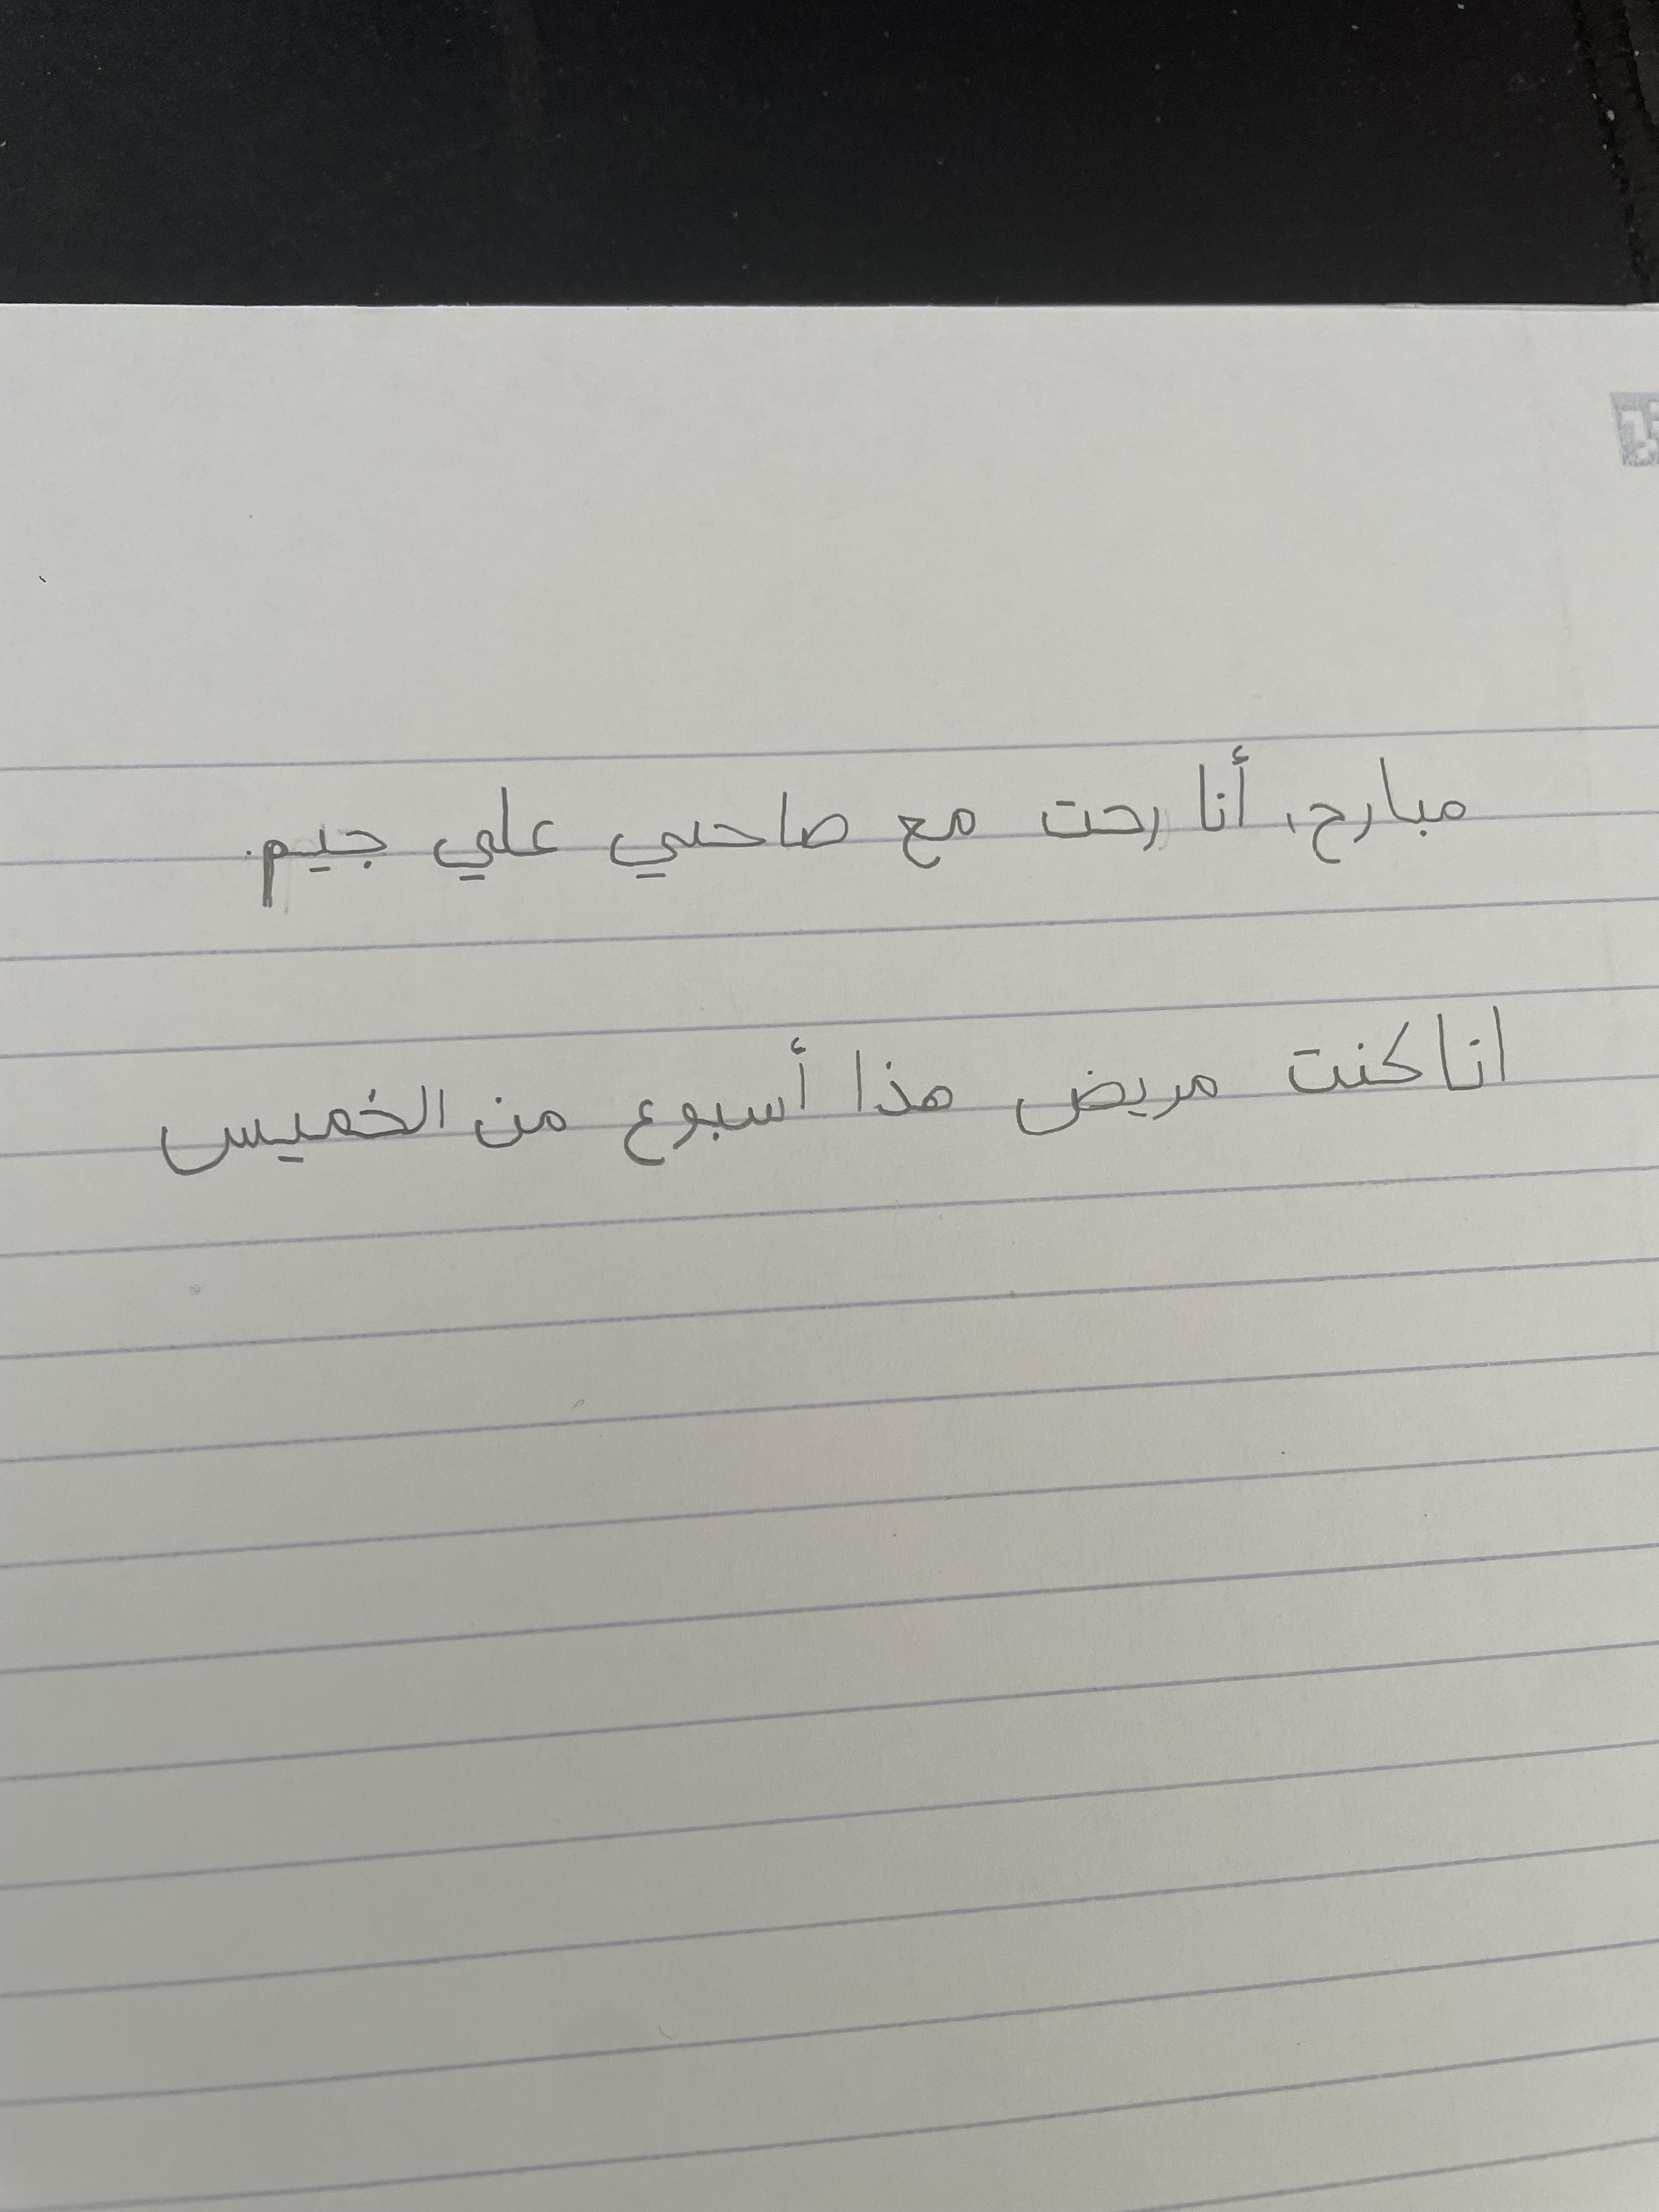 مبارح، أنا رحت مع صاحبي علي جيم.
انا كنت مريض هذا أسبوع من الخميس